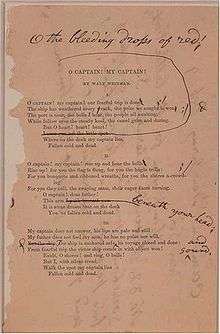 O the bleeding drops of red!
O CAPTAIN! MY CAPTAIN!
BY WALT WHITMAN.
I.
O CAPTAIN! my captain! our fearful trip is done;
The ship has weathered every rock, the prize we sought is won;
The port is near, the bells I hear, the people all exulting,
While follow eyes the steady keel, the vessel grim and daring:
But O heart! heart! heart!
Where on the deck my captain lies,
Fallen cold and dead.
II.
O captain! my captain! rise up and hear the bells;
Rise up! for you the flag is flung, for you the bugle trills;
For you bouquets and ribboned wreaths, for you the shores
For you they call, the swaying mass, their eager faces turning.
O captain! dear father!
This arm
beneath your head;
It is some dream that on the deck
You've fallen cold and dead.
III.
My captain does not answer, his lips are pale and still;
My father does not feel my arm, he has no pulse nor will.
ship is anchored safe, its voyage closed and done: and
From fearful trip the victor ship comes in with object won: sound,
Exult, O shores! and ring, O bells!
But I, with silent tread,
Walk the spot my captain lies
Fallen cold and dead.